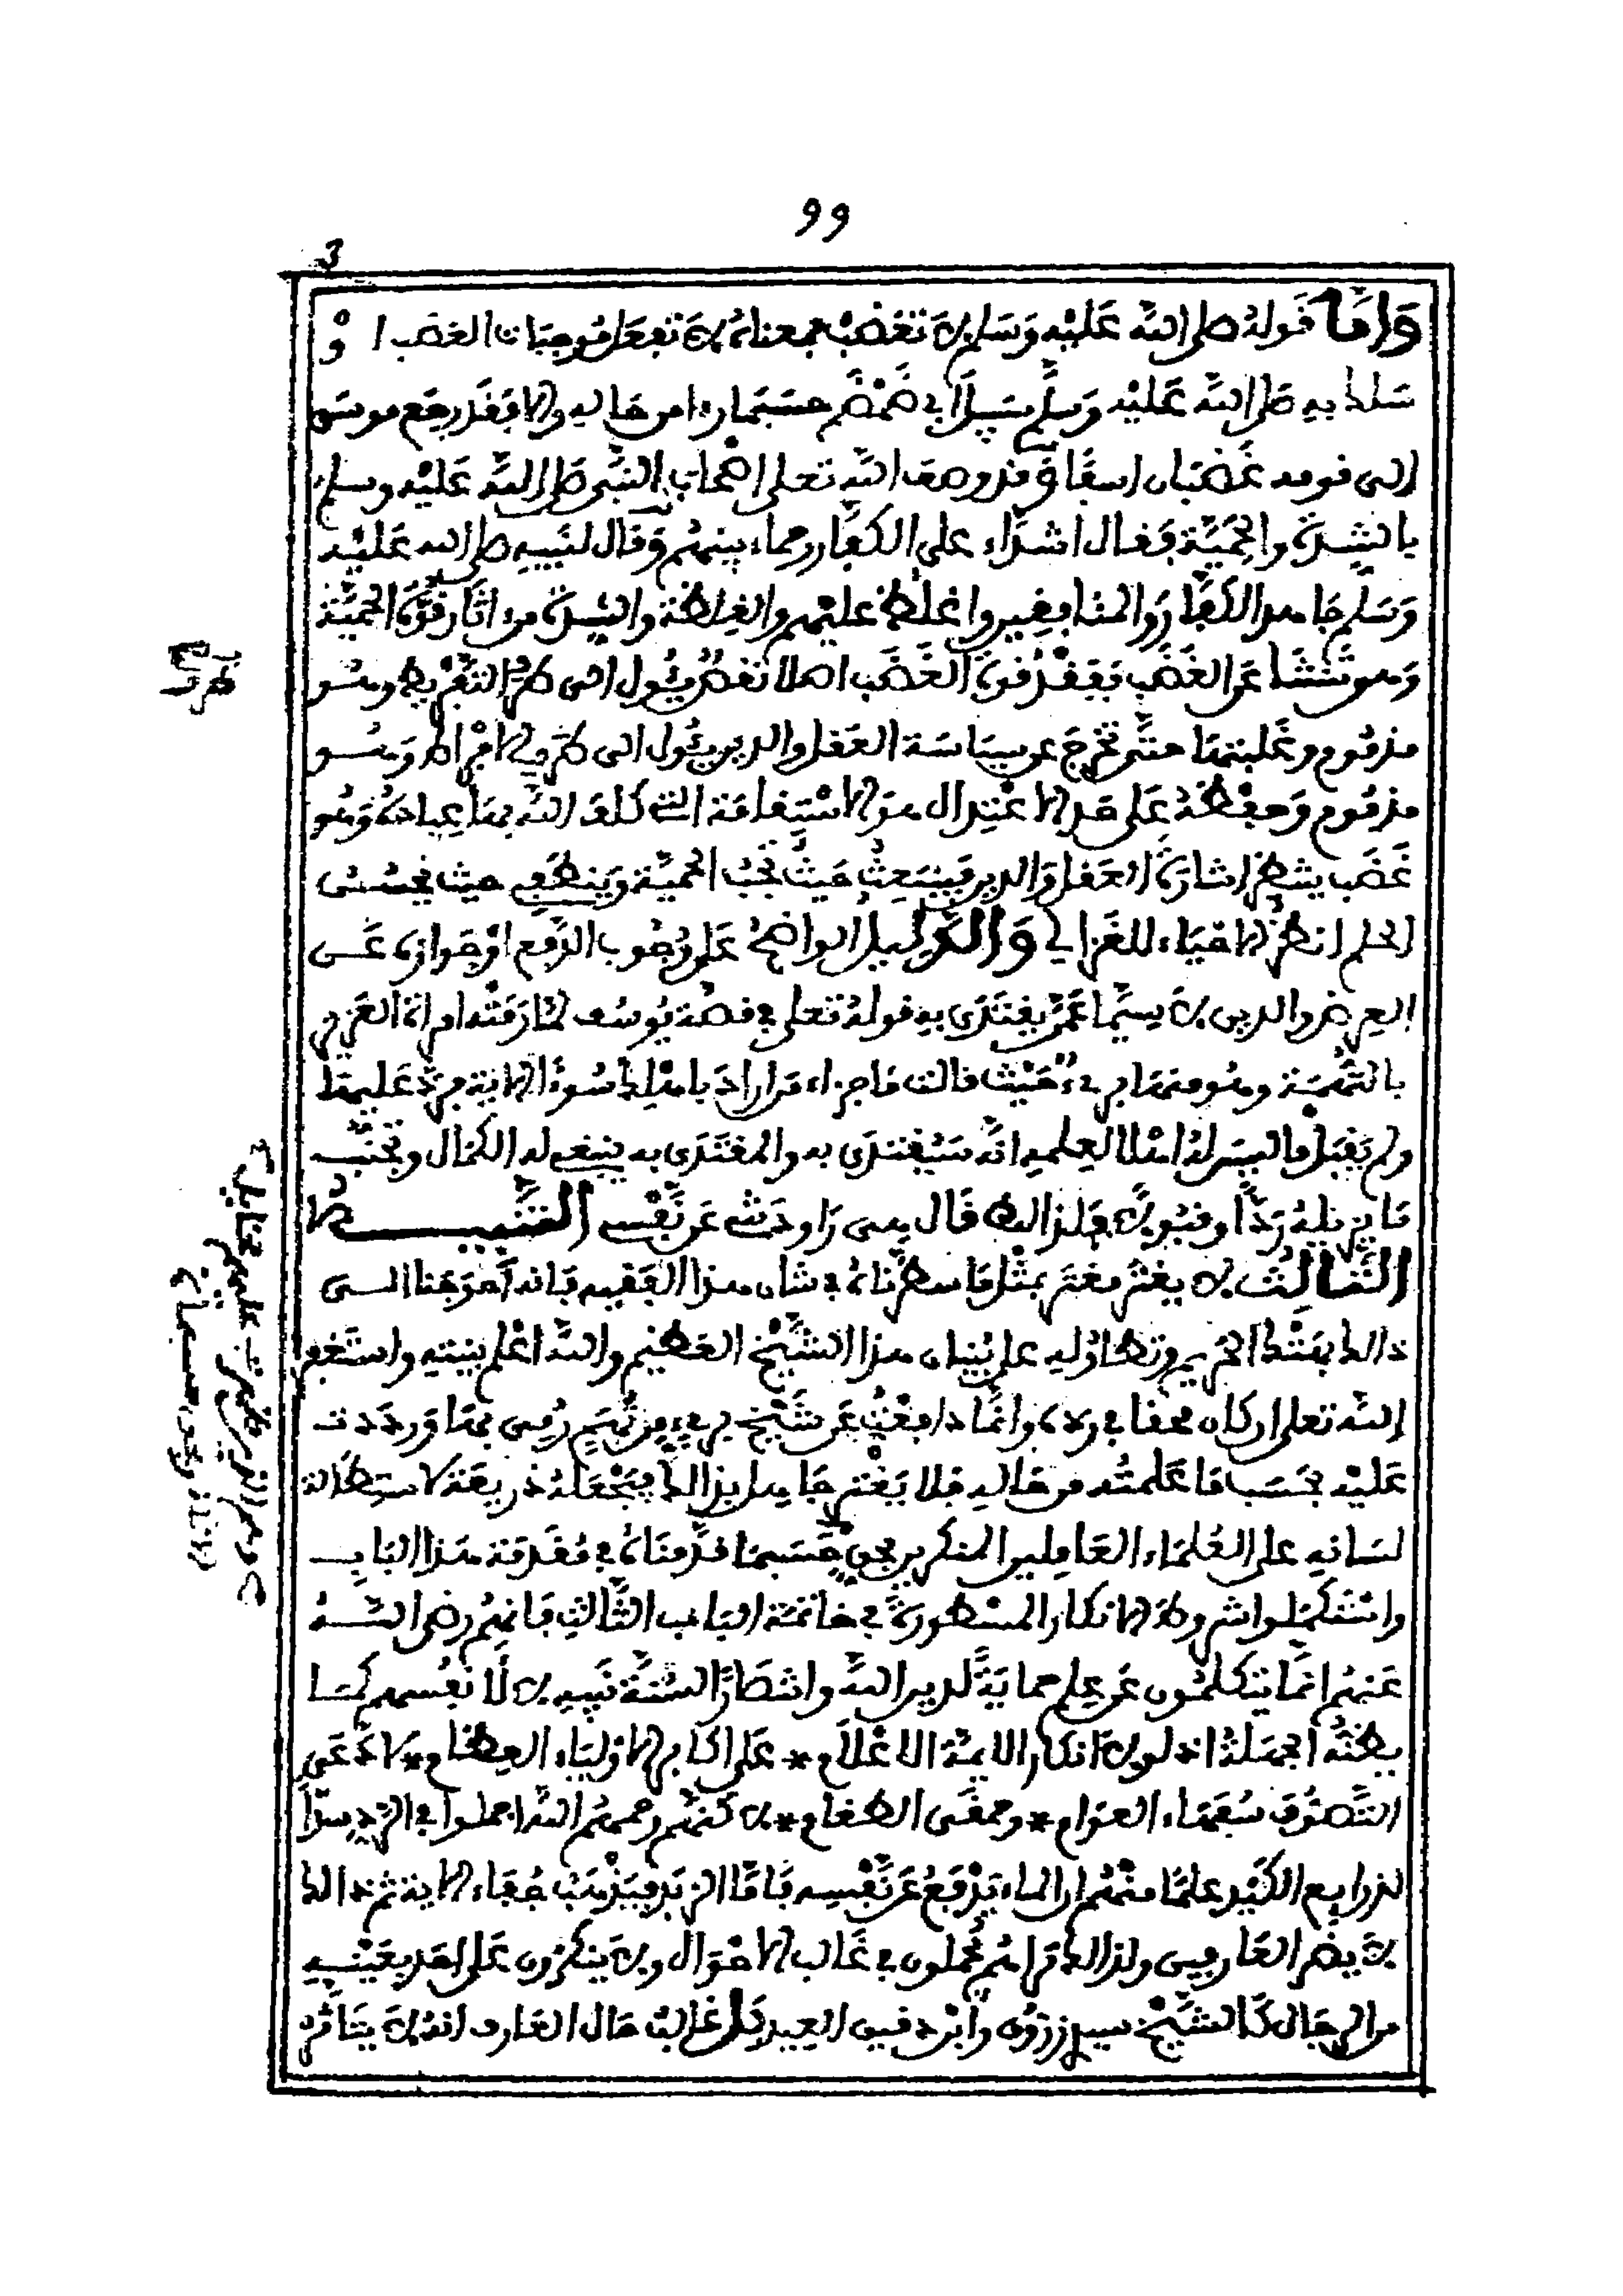 99
3
وَأَمَّا قَوْلُهُ صلى الله عَلَيْهِ وَسَلم لَا تَغْضَبْ فمعناه لَا تَفْعَل مُوجِبَات الغضب أوْ
سَلك به صلى الله عَلَيْه وَسَلَّم سَبِيلَ أبي ضَمْضَم حسبما رءا من حاله والا فقد رجع موسى
إلى قومه غَضْبَان أسِفًا وقد وصف الله تعلى أصْحَاب النبي صلى الله عَلَيْه وسلم
بالشِدة والحَمِيَّة فقال أشدّاء على الكفّار رحماء بينهم وَقال لنبيه صلى الله عَلَيْه
وَسَلم جَاهد الكفّار والمنافقين واغلظ عليهم والغلظة والشدة من آثَار قُوَّة الحَمِيَّة
وَهو تنشَأ عن الغَضَب فَفَقْدُ قوة الغَضَب أصلا نَقْصٌ يَئُول إلى طَرَفِ التفْرِيط وهُو
مذمُوم وغَلَبتها حتَّى تخْرجَ عن سِيَاسَة العَقل والدين يئُول إلى طَرف الافْراط وَهُو
مذمُوم وَحِفْظُهُ عَلى حَد الاعْتِدال هو الاسْتِقَامَة التي كلف الله بهَا عِبادهُ وَهُو
غَضَب ينتظر إشارة العَقل وَالدين فيَنْبَعِثُ حَيْثُ تجبُ الحميَّة وَينطفي حيث يحسُن
الحلم انظر الاحْيَاء للغَزالي وَالدَّلِيلُ الواضحُ عَلى وُجُوب الدَّفع أوْ جَوازه عَن
العِرض والدين لا سِيَّمَا عَمَّن يقْتَدَى به قولهُ تعلى في قصة يُوسُف لما رَمَتْهُ امرأة العَزيز
بالتُّهمَة وهُو منهَا بريءٌ حَيْث قالت مَا جزاء من أراد بأهْلِكَ سُوءًا الآية فردَّ عَليهَا
ولم يَقْبَل مَا ليسَ لهُ أهْلا لعِلمه أنه سَيُقتدَى به والمُقتدَى به ينبغي له الكَمَال وتجنّب
مَا يزيلهُ رَدًّا وقبُولًا فلذالك قَال هي رَاوَدَتني عَن نَّفْسِي التنْبِيــــهُ
الثَّالِثُ لا يغترّ مغترّ بمثْل مَا سطرناهُ في شأن هذا الفقيه فإنه أحْوَجَنَا إلى
ذالك بهَتْك الحَريم وتطاوُله على بُنيان هذا الشيْخ العَظيم والله أعْلم بنيته واستَغفر
الله تعلى إن كان محقا في ردّه وإنَّمَا دافَعْتُ عَن شَيْخ بريءٍ من تُهَم رُمِي بهَا وَرددت
عَلَيْه بحَسَب مَا عَلمتُه من حَاله فلا يَغْترّ جَاهل بذالك فيَجْعَلهُ ذريعَة لاستِطَالة
لسَانِه على العُلَمَاء العَاملين المنكرين بحَقٍّ حَسَبما قدّمنَاهُ في مُقدّمَة هَذا البَاب
واسْتكمَلوا شروط الانكار المسْطورة في خاتمَة البَاب الثَّالث فَانهُم رضي الله
عَنهُم إنّمَا يتكلمُون عَن علم حمايَةً لدين الله وانتصَارًا لسُنَّة نَبيه لَا لَا نفُسهم كمَا
يظنُّهُ الجَهلةُ إذ لوْلا إنكار الايمة الاعْلَام * عَلى أكابر الاوْليَاء العِظَام * لادَّعَى
التَّصوُّف سُفَهَاء العوَام * وحمقَى الطغام * لاكنهُم رحمهُم الله أجملوا في الرّد سدًّا
لذرايع الكَيْد علمًا منهُم أن الماء يَدْفَعُ عَن نَّفْسِه فَأمَّا الزبَد فيَذْهَبُ جُفَاء الآية ثم ذالك
لا يضر العَارفين ولذالك تراهُم يُجْملون في غَالب الاحْوَال ولَا يَنكرُون عَلى أحَد بعَيْنِه
من الرجَال كَالشَّيْخ سيدي زرُّوق وابْن دقيق العيد بَلْ غَالبُ حَال العَارف أنهُ لَا يتأثر